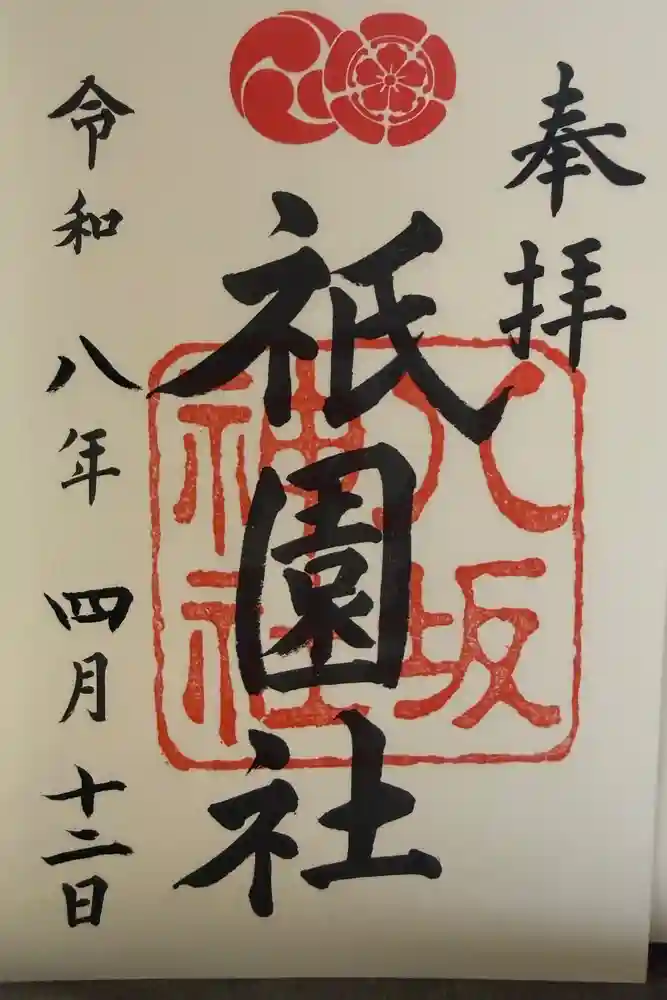 奉拝
祇園社
八坂
神社
令和八年四月十二日